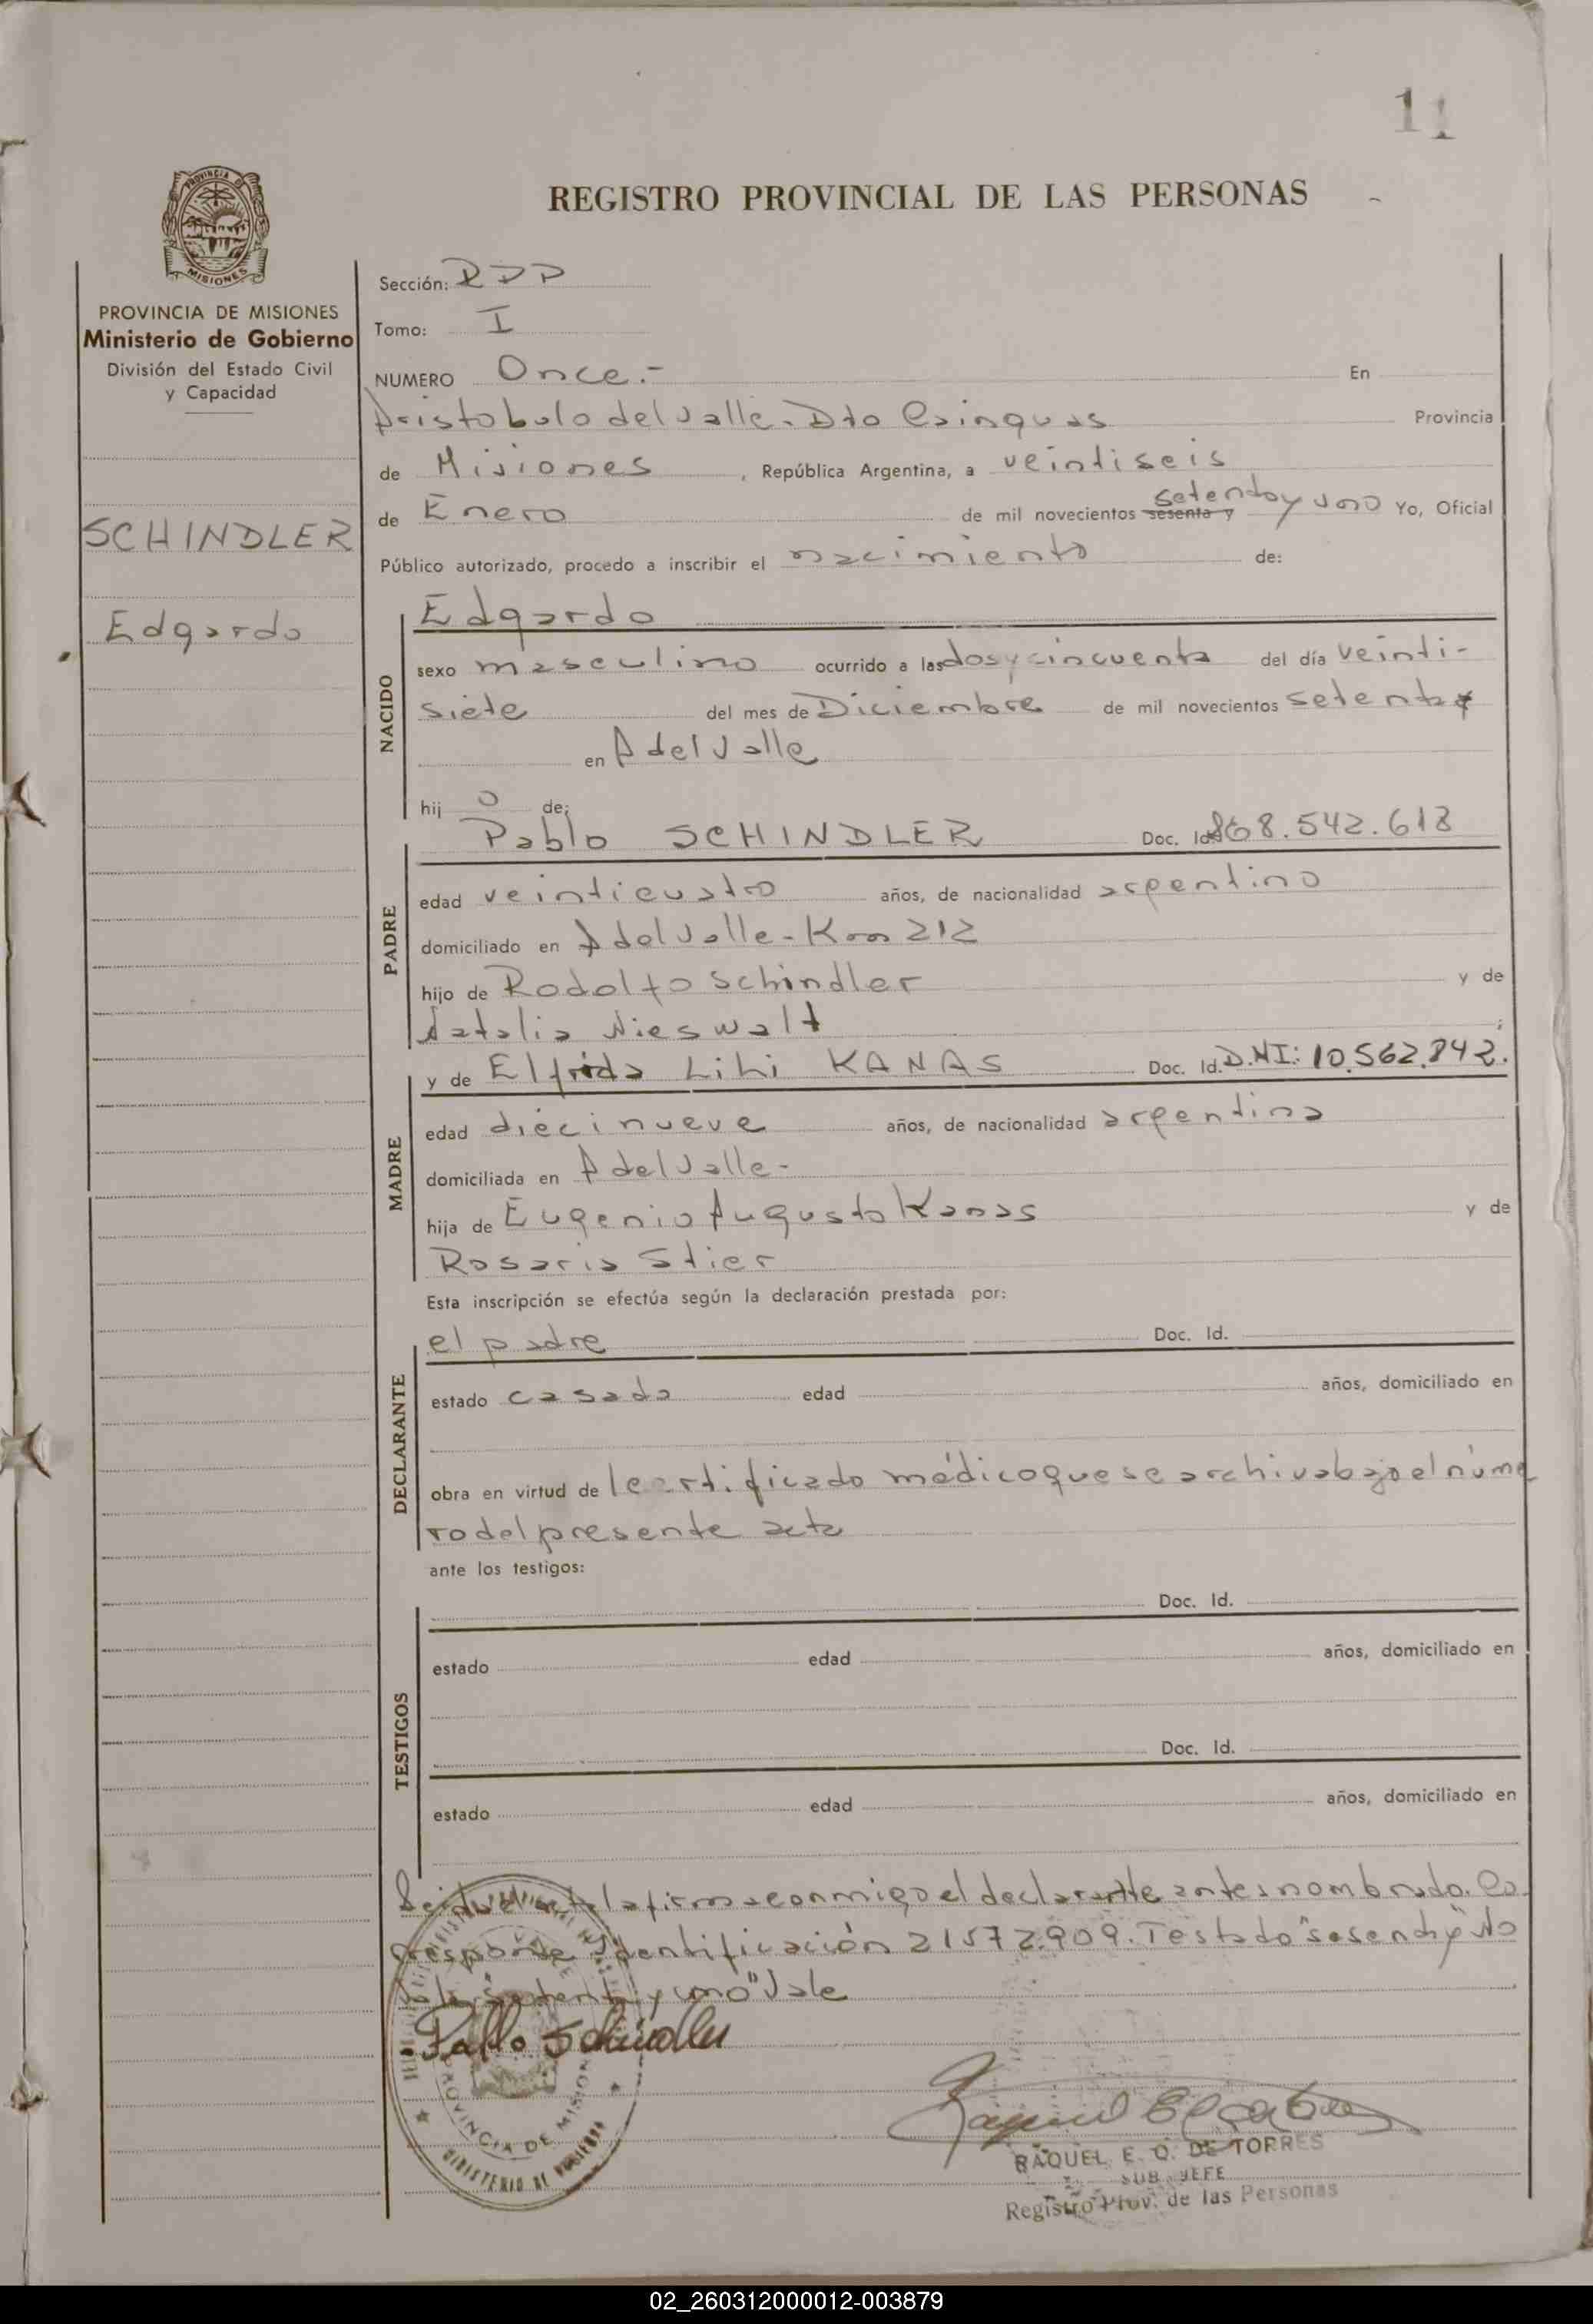 11
REGISTRO PROVINCIAL DE LAS PERSONAS
PROVINCIA DE MISIONES
Ministerio de Gobierno
División del Estado Civil
y Capacidad
SCHINDLER
Edgardo
Sección: RDP
Tomo: I
NUMERO Once.- En
Aristobulo del Valle. Dto Cainguas Provincia
de Misiones, República Argentina, a veintiseis
de Enero de mil novecientos sesenta y setenta y uno Yo, Oficial
Público autorizado, procedo a inscribir el nacimiento de:
NACIDO
Edgardo
sexo masculino ocurrido a las dos y cincuenta del día veinti-
siete del mes de Diciembre de mil novecientos setenta
en A del Valle
hij o de:
PADRE
Pablo SCHINDLER Doc. Id. 8.542.618
edad veinticuatro años, de nacionalidad argentino
domiciliado en A del Valle - Km 212
hijo de Rodolfo Schindler y de
Natalia Nieswalt
MADRE
y de Elfrida Lihi KANAS Doc. Id. D.NI: 10.562.842.
edad diecinueve años, de nacionalidad argentina
domiciliada en A del Valle-
hija de Eugenio Augusto Kanas y de
Rosaria Stier
Esta inscripción se efectúa según la declaración prestada por:
DECLARANTE
el padre Doc. Id.
estado casado edad años, domiciliado en
obra en virtud de l certificado médico que se archiva bajo el núme
ro del presente acta
ante los testigos:
TESTIGOS
Doc. Id.
estado edad años, domiciliado en
Doc. Id.
estado edad años, domiciliado en
la firma conmigo el declarante antes nombrado. Co
rresponde Identificación 21572.909. Testado "sesenta y" No
Vale "setenta y uno" Vale
Pablo Schindler
PROVINCIA DE MISIONES
MINISTERIO DE GOBIERNO
RAQUEL E. O. DE TORRES
SUB JEFE
Registro Prov. de las Personas
02_260312000012-003879